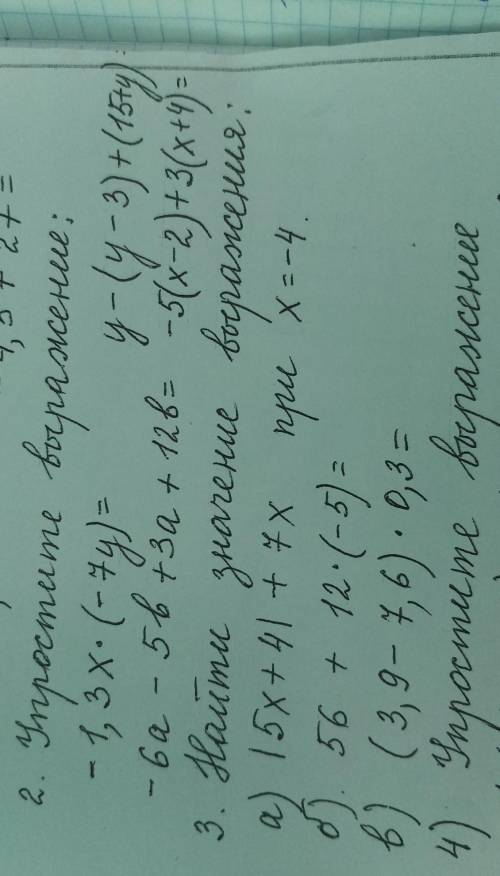 4,5 + 2 + =
2. Упростите выражение:
-1,3x·(-7y)= y-(y-3)+(15+y):
-6a-5b+3a+12b= -5(x-2)+3(x+4)=
3. Найти значение выражения:
а) |5x+4|+7x при x=-4.
б). 56 + 12·(-5)=
в) (3,9-7,6)·0,3=
4) Упростите выражение